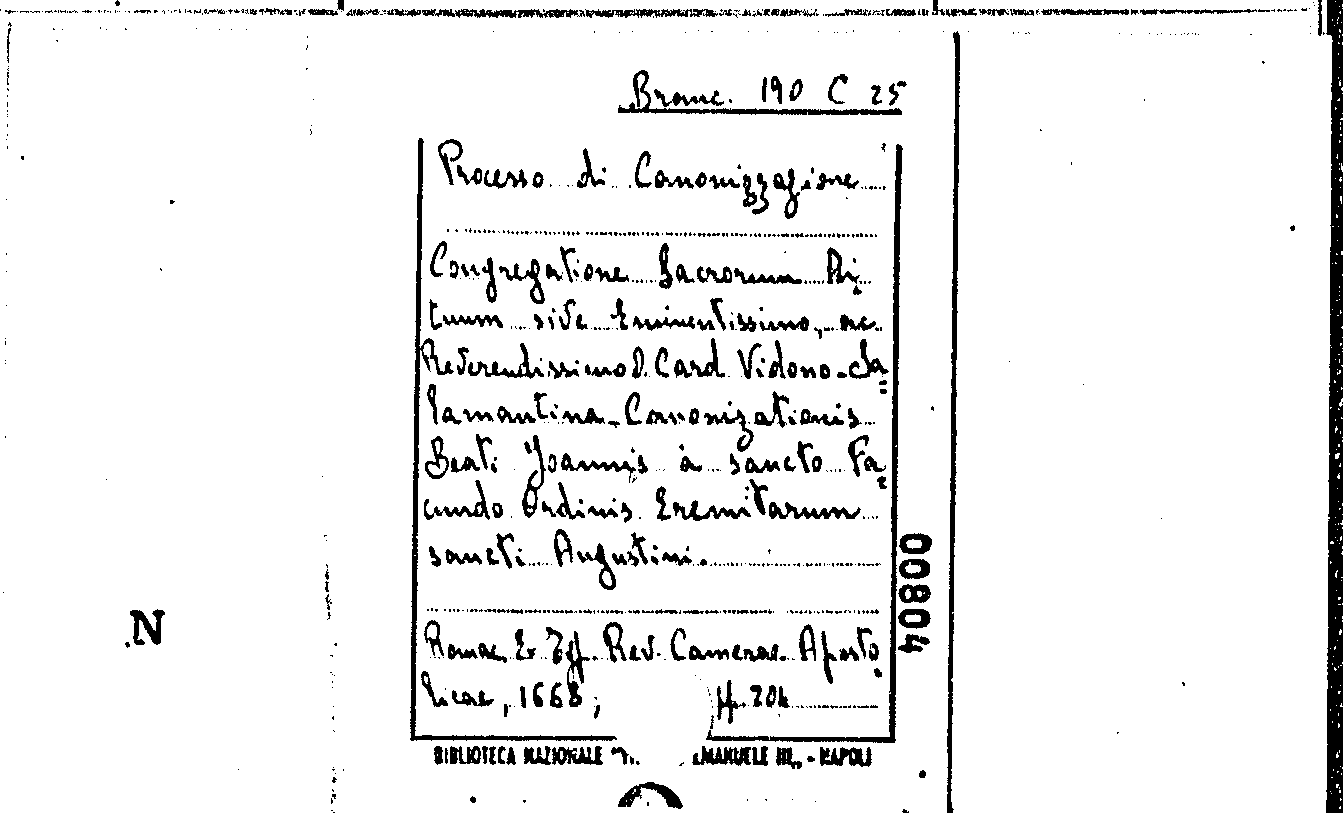 Branc. 190 C 25
Processo di Canonizzazione
Congregatione Sacrorum Ri
tuum sive Eminentissimo, ac
Reverendissimo D. Card. Vidono-Sa=
lamantina-Canonizationis
Beati Joannis à sancto Fa=
cundo Ordinis Eremitarum
sancti Augustini.
00804
N
Romae, Ex Typ. Rev. Camerae Aposto
licae, 1668; pp. 204
BIBLIOTECA NAZIONALE EMANUELE III„ - NAPOLI